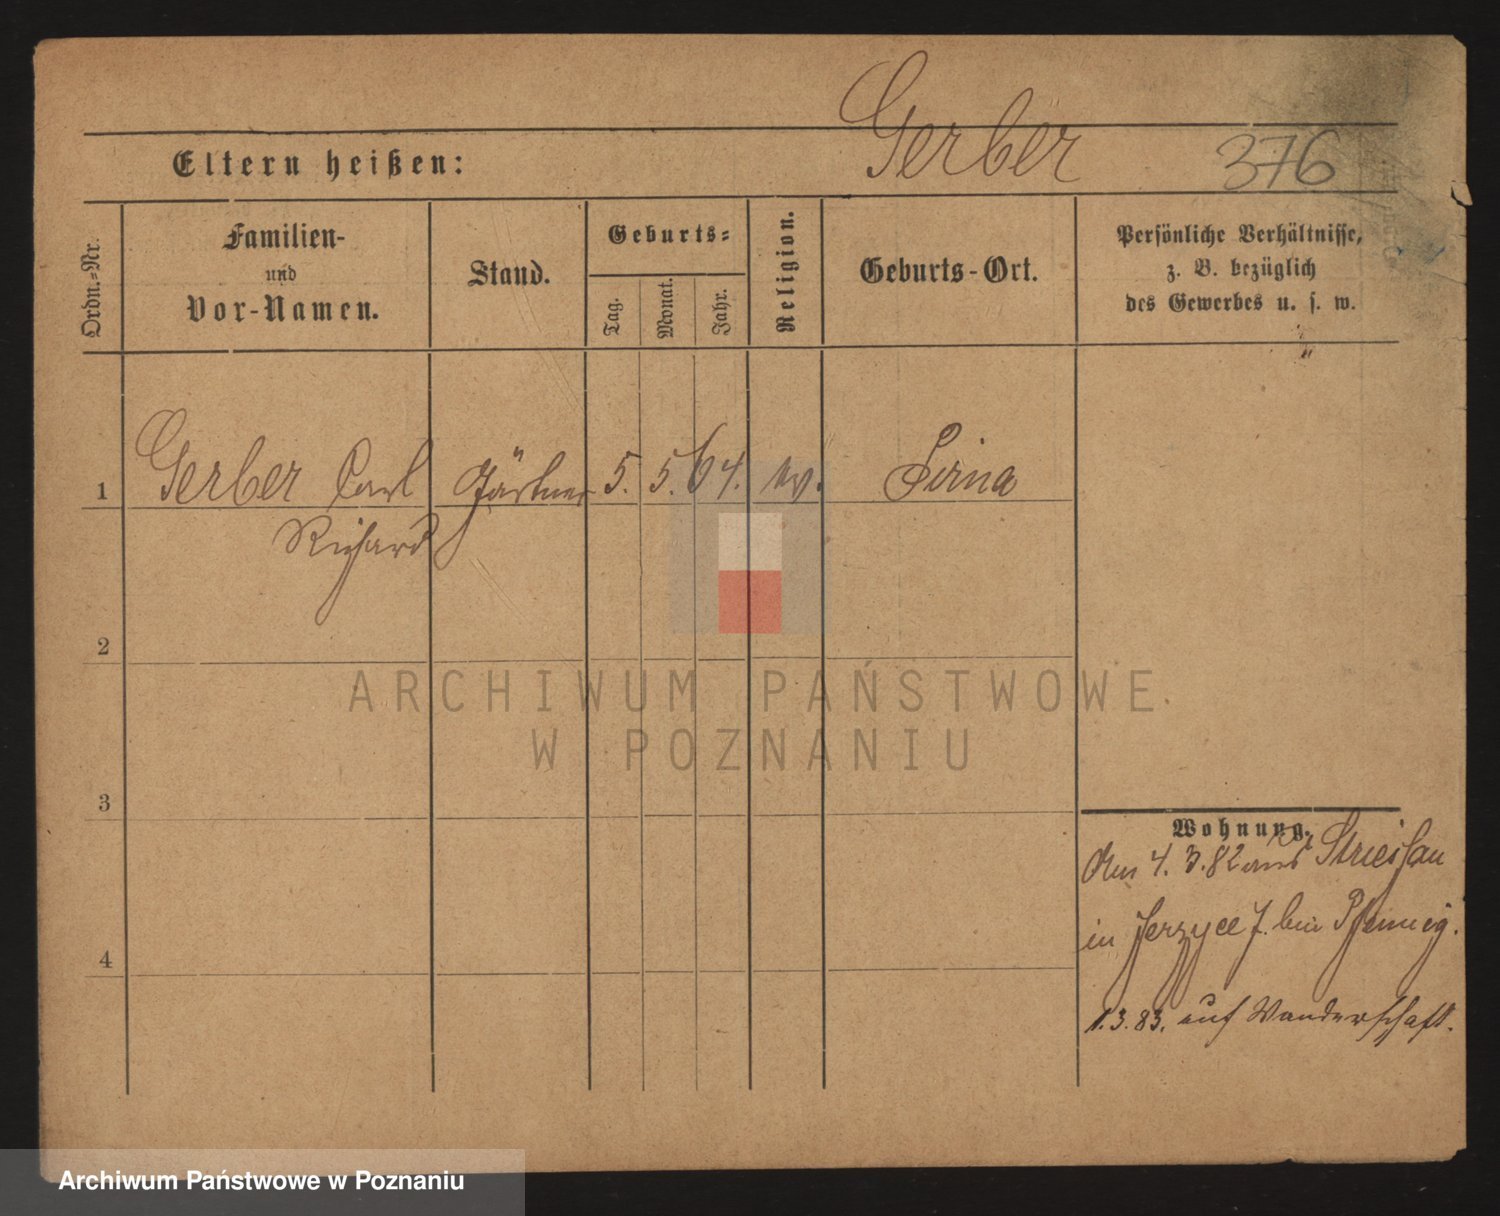 Gerber
Eltern heißen:
376
Ordn.-Nr.
Familien-
und
Vor-Namen.
Stand.
Geburts-
Tag.
Monat.
Jahr.
Religion.
Geburts-Ort.
Persönliche Verhältnisse,
z. B. bezüglich
des Gewerbes u. s. w.
1
Gerber Carl
Richard
Gärtner
5.
5.
64.
ev.
Pirna
2
3
4
Wohnung.
Am 4. 3. 82 aus
in Jerzyce 7. bei Pfennig.
1. 3. 83. auf Wanderschaft.
ARCHIWUM PAŃSTWOWE
W POZNANIU
Archiwum Państwowe w Poznaniu